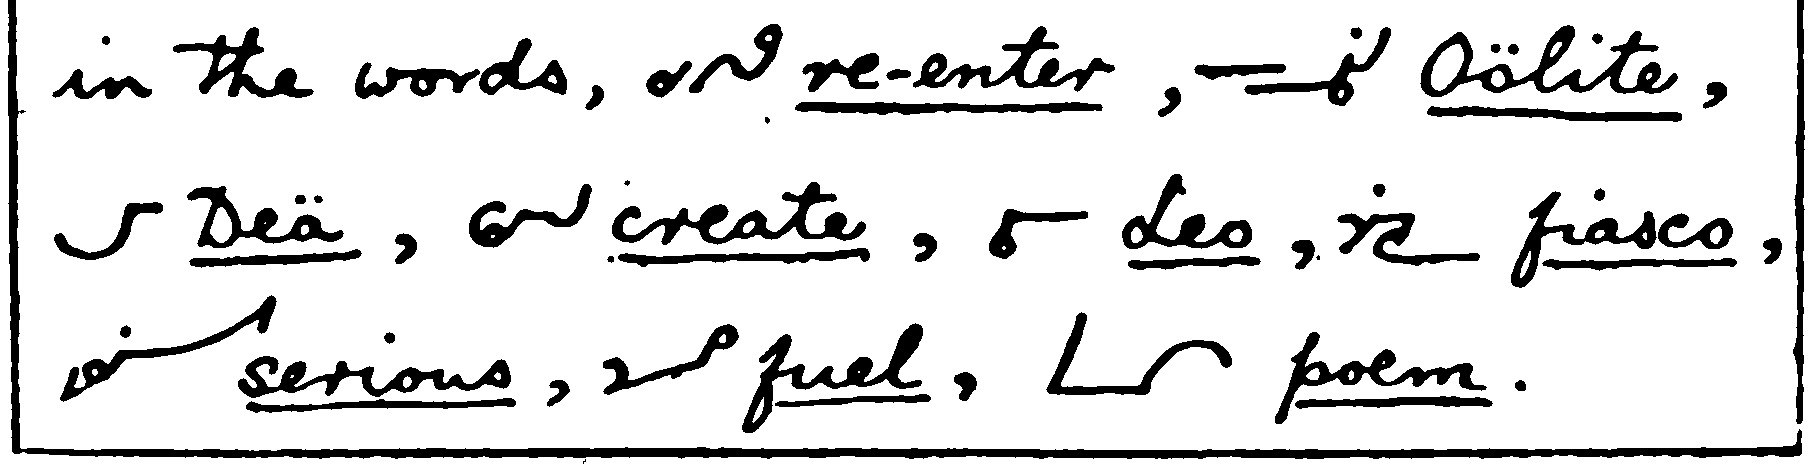 in the words, re-enter, Oölite,
Deä, create, Leo, fiasco,
serious, fuel, poem.